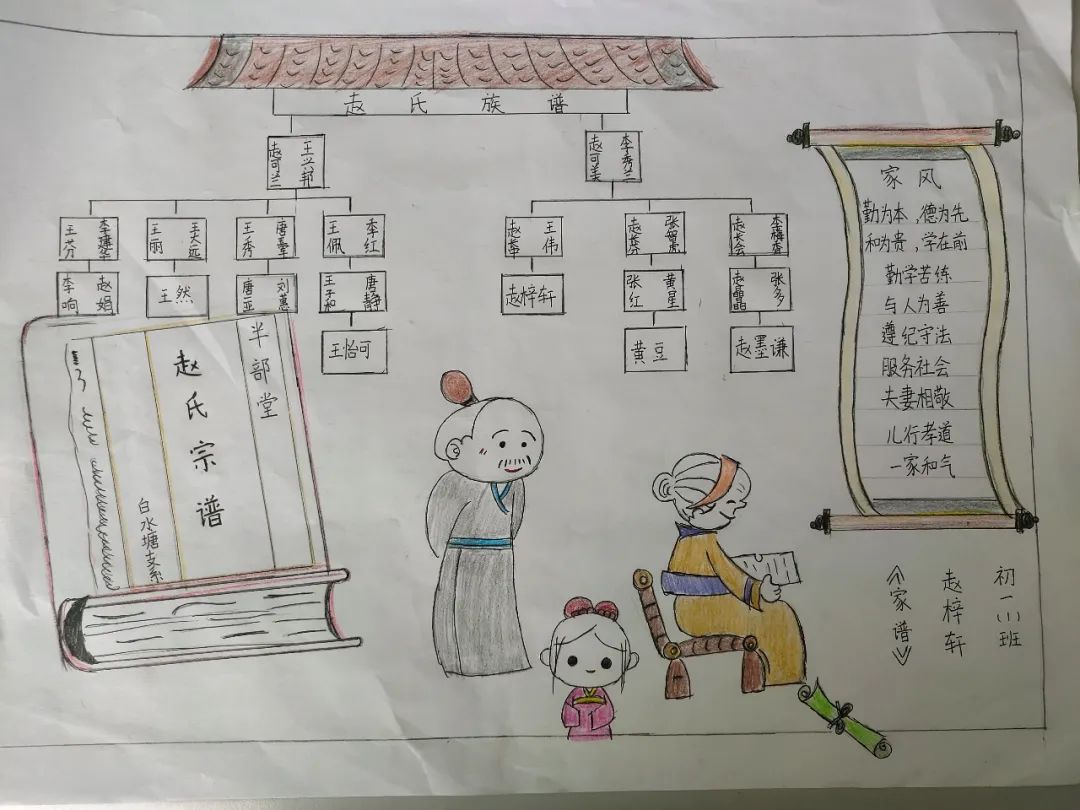 赵氏族谱
赵可兰
王兴邦
赵可美
李秀兰
王芬
王丽
王大远
王秀
王佩
季红
王伟
赵长会
李响
赵娟
王然
唐亚
刘蕙
王子和
唐静
赵梓轩
张红
黄星
赵晶晶
张多
王怡可
黄豆
赵墨谦
半部堂
赵氏宗谱
白水塘支系
家风
勤为本,德为先
和为贵,学在前
勤学苦练
与人为善
遵纪守法
服务社会
夫妻相敬
儿行孝道
一家和气
初一(1)班
赵梓轩
《家谱》